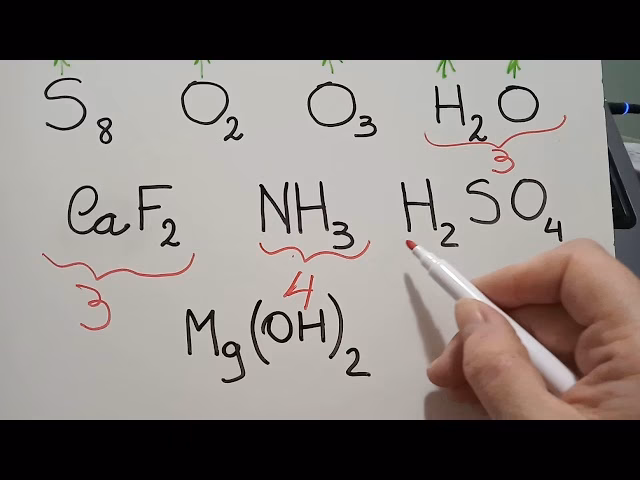 S₈ O₂ O₃ H₂O
3
CaF₂ NH₃ H₂SO₄
3 4
Mg(OH)₂